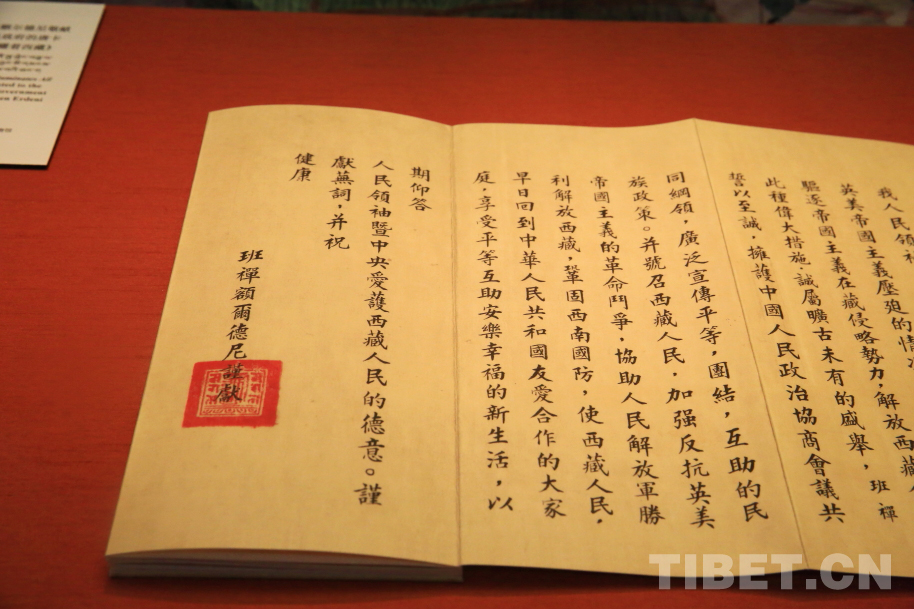 我人民領
英美帝國主義壓迫的情
驅逐帝國主義在藏侵略勢力，解放西藏
此種偉大措施，誠屬曠古未有的盛舉，班禪
誓以至誠，擁護中國人民政治協商會議共
同綱領，廣泛宣傳平等，團結，互助的民
族政策。并號召西藏人民，加强反抗英美
帝國主義的革命鬥爭，協助人民解放軍勝
利解放西藏，鞏固西南國防，使西藏人民，
早日回到中華人民共和國友愛合作的大家
庭，享受平等互助安樂幸福的新生活，以
期仰答
人民領袖暨中央愛護西藏人民的德意。謹
獻蕪詞，并祝
健康
班禪額爾德尼謹獻
All
to the
Erdeni
TIBET.CN